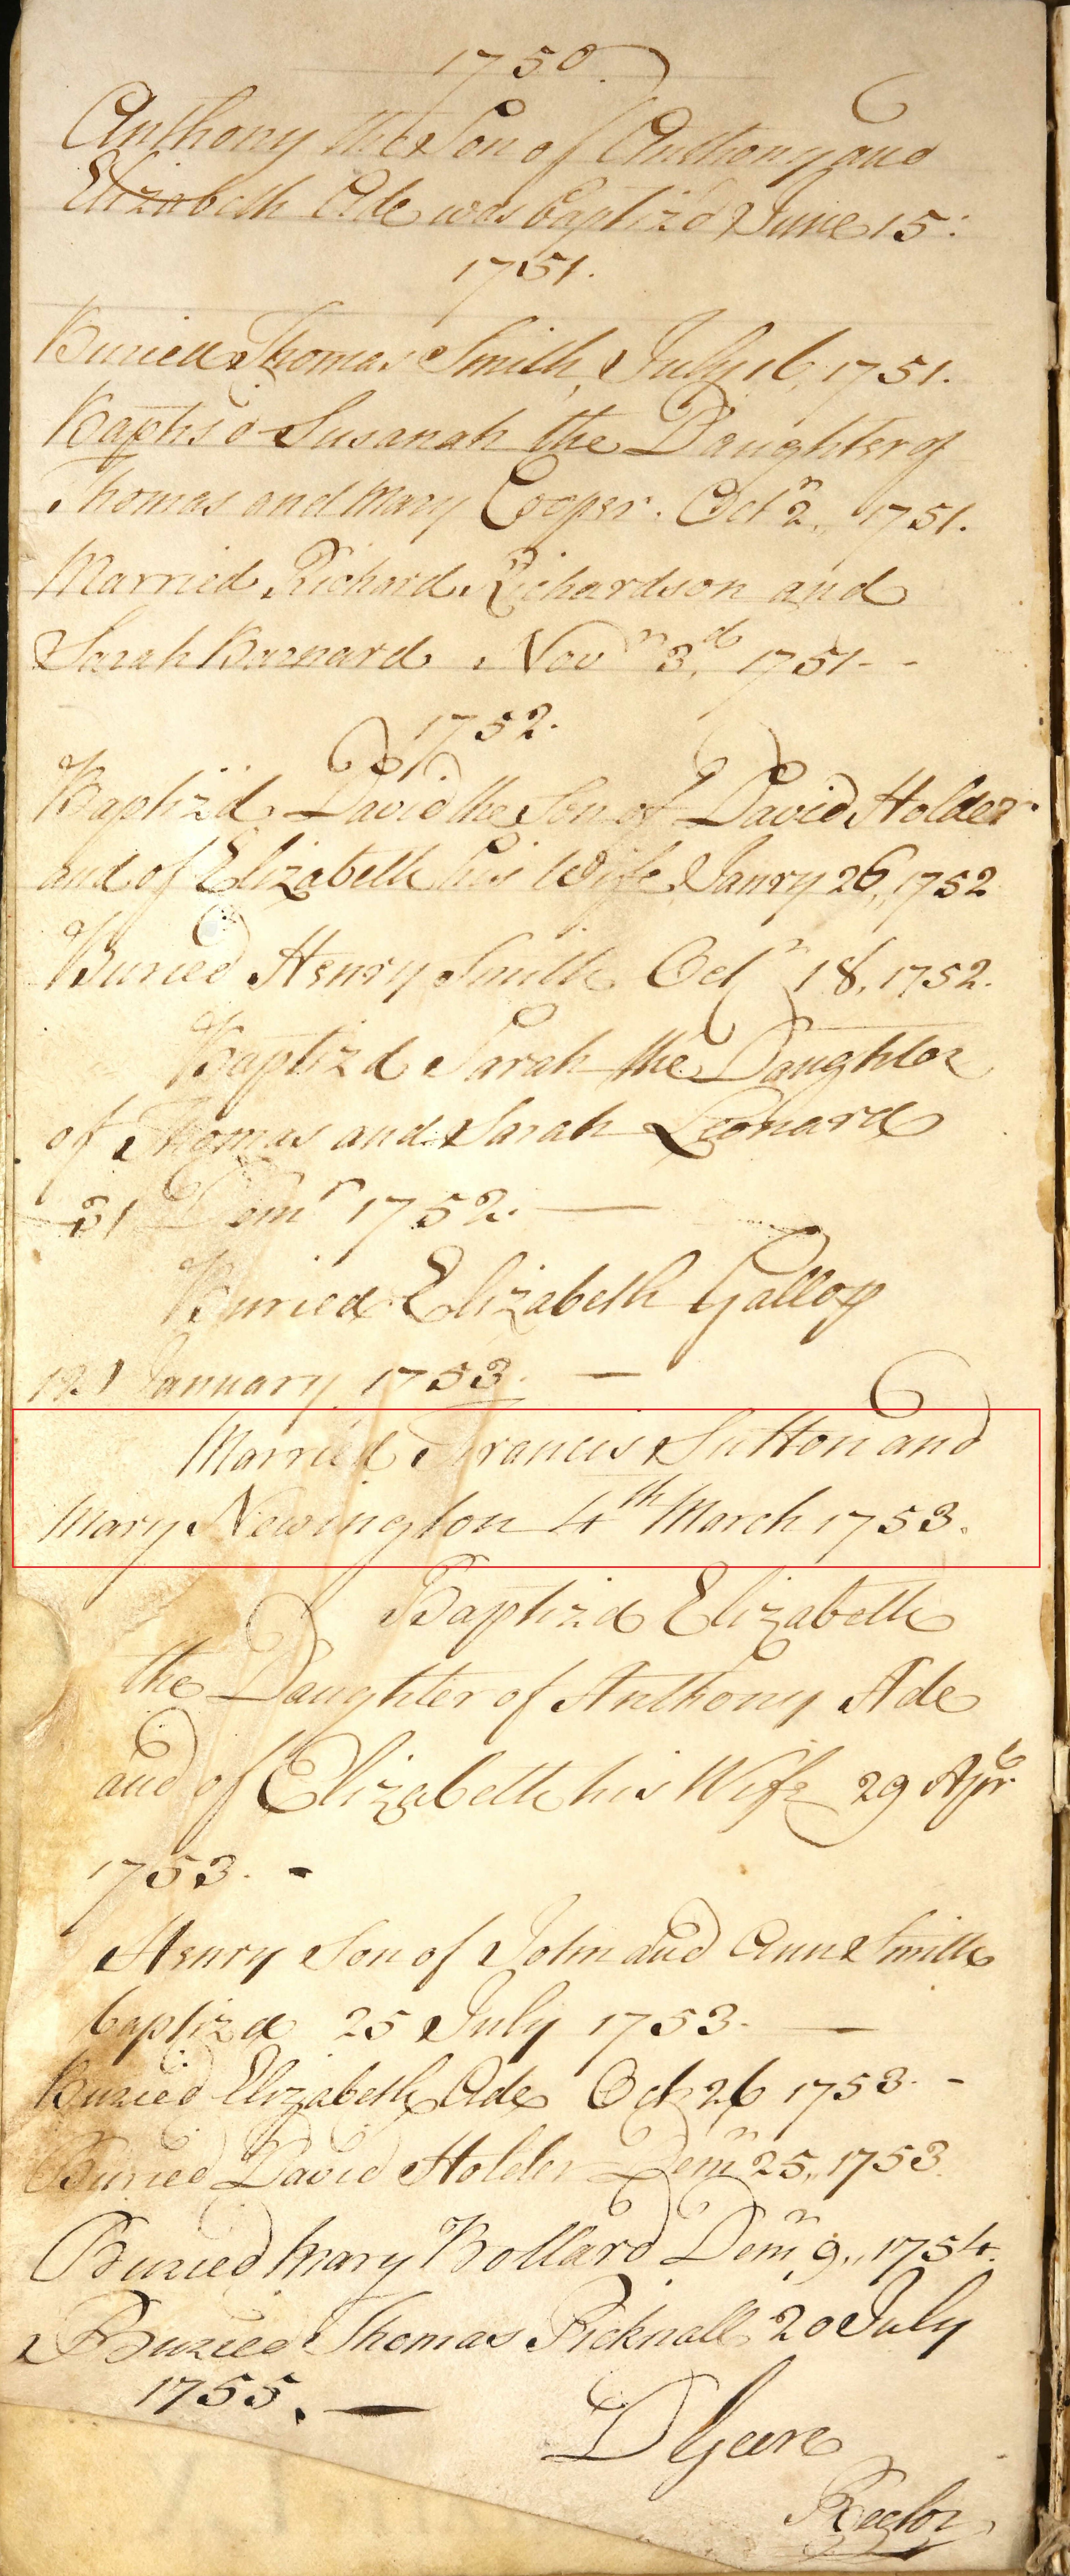 1750.
Anthony the Son of Anthony and
Elizabeth Ade was baptiz'd June 15:
1751.
Buried Thomas Smith, July 16, 1751.
Baptis'd Susanah the Daughter of
Thomas and Mary Cooper. Octr 2,, 1751.
Married Richard Richardson and
Sarah Barnard Novr 3d, 1751--
1752.
Baptiz'd David the Son of David Holder
and of Elizabeth his Wife Janry 26,, 1752
Buried Henry Smith Octr 18, 1752.
Baptizd Sarah the Daughter
of Thomas and Sarah Leonard
31 Demr 1752. —
Buried Elizabeth Gallop
January 1753. —
Married Francis Sutton and
Mary Newington 4th March 1753.
Baptizd Elizabeth
the Daughter of Anthony Ade
and of Elizabeth his Wife 29 Aprl
1753. -
Henry Son of John and Ann Smith
baptizd 25 July 1753. —
Buried Elizabeth Ade Oct 26 1753. -
Buried David Holder Demr 25,, 1753.
Buried Mary Bollard Demr 9,, 1754.
Buried Thomas Picknall 20 July
1755. —
D Geere
Rector